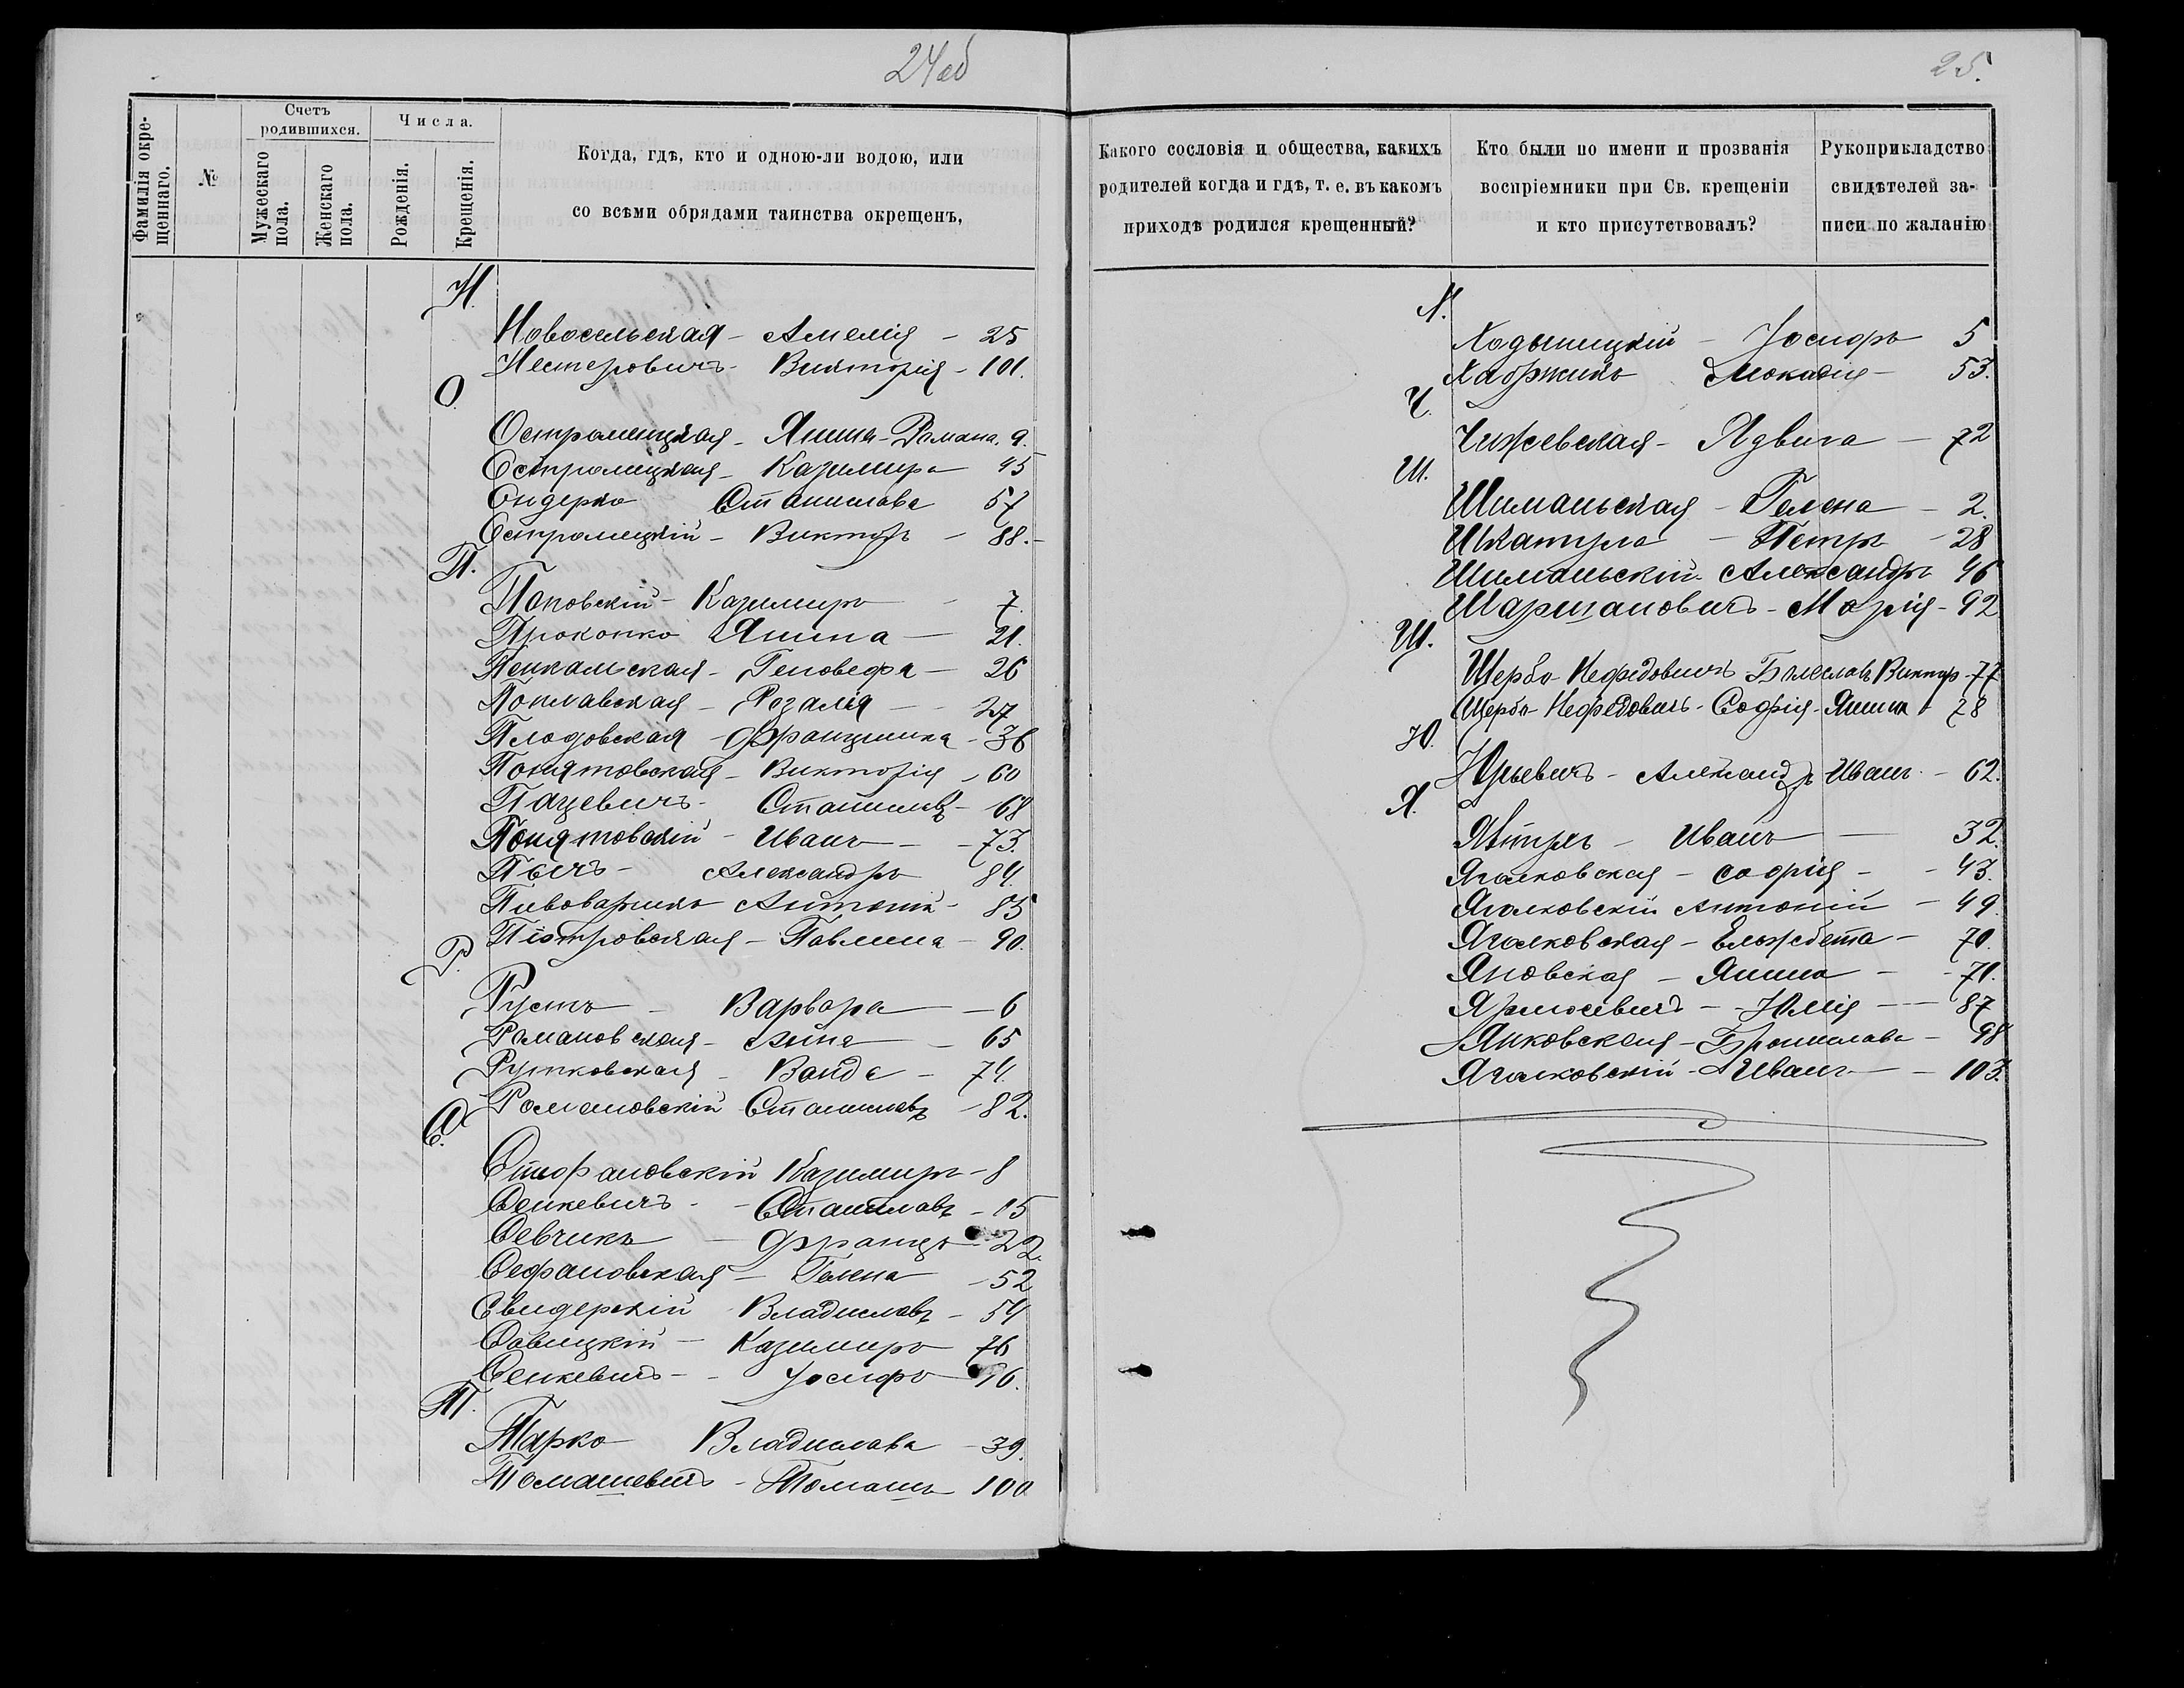 24об
Фамилія окрещеннаго.
№
Счетъ родившихся.
Мужескаго пола.
Женскаго пола.
Числа.
Рожденія.
Крещенія.
Когда, гдѣ, кто и одною-ли водою, или
со всѣми обрядами таинства окрещенъ,
Н.
Новосельская - Амелія - 25
Нестеровичъ - Викторія - 101.
О.
Остромецкая - Янина-Романа. 9.
Остромецкая - Казимира 45
Ондерко Станислава 57
Остромецкій - Викторъ - 88.-
П.
Поповскій - Казимиръ - 7.
Проконко Янина - 21.
Пенкальская - Геновефа - 26
Поплавская - Розалія - 27
Плодовская - Францишка - 36
Понятовская - Викторія - 60
Пацевичъ - Станиславъ - 68
Понятовскій - Иванъ - 73.
Пѣчъ - Александръ 84.
Пивоварчикъ Антоній - 85
Піотровская - Павлина - 90.
Р.
Рустъ - Варвара - 6
Романовская - Анна - 65
Рутковская - Ванда - 74.
Романовскій Станиславъ - 82.
С.
Стефановскій Казимиръ - 8
Сенкевичъ - Станиславъ - 15
Севчикъ - Францъ - 22.
Сефановская - Гелена - 52
Свидерскій Владиславъ - 54
Савицкій - Казимиръ 76
Сенкевичъ - Іосифъ 96.
Т.
Тарко Владислава - 39.
Томашевичъ - Томашъ 100
25.
Какого сословія и общества, какихъ
родителей когда и гдѣ, т. е. въ какомъ
приходѣ родился крещенный?
Кто были по имени и прозванія
воспріемники при Св. крещеніи
и кто присутствовалъ?
Рукоприкладство
свидѣтелей за-
писи по жаланію
Х.
Ходыницкій - Іосифъ 5
Хворжикъ Леокадія - 53.
Ч.
Чижевская - Ядвига - 72
Ш.
Шиманьская - Гелена - 2.
Шкатула - Петръ - 28
Шиманьскій Александръ 46
Шаршановичъ - Марія - 92
Щ.
Щербо-Нефедовичъ Болеславъ Викторъ - 77
Щербо-Нефедовичъ - Софія-Янина - 78
Ю.
Юрьевичъ - Александръ Иванъ - 62.
Я.
Иванъ - 32.
Ягалковская - Софія - 43.
Ягалковскій Антоній - 49.
Ягалковская - Ельжбета - 70.
Яновская - Янина - 71.
Ярмолевичъ - Юлія - 87
Янковская - Бронислава - 98
Ягалковскій - Иванъ - 103.